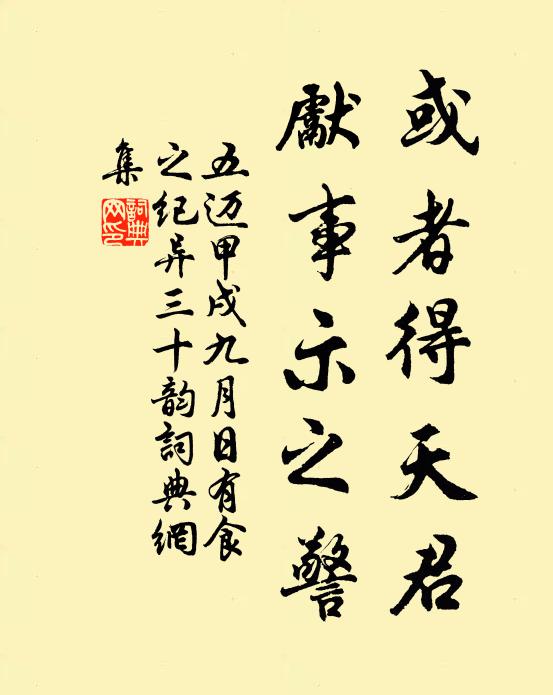 或者得天君
献事示之警
五迈甲戌九月日有食
之纪异三十韵詞典網
集
詞典網印